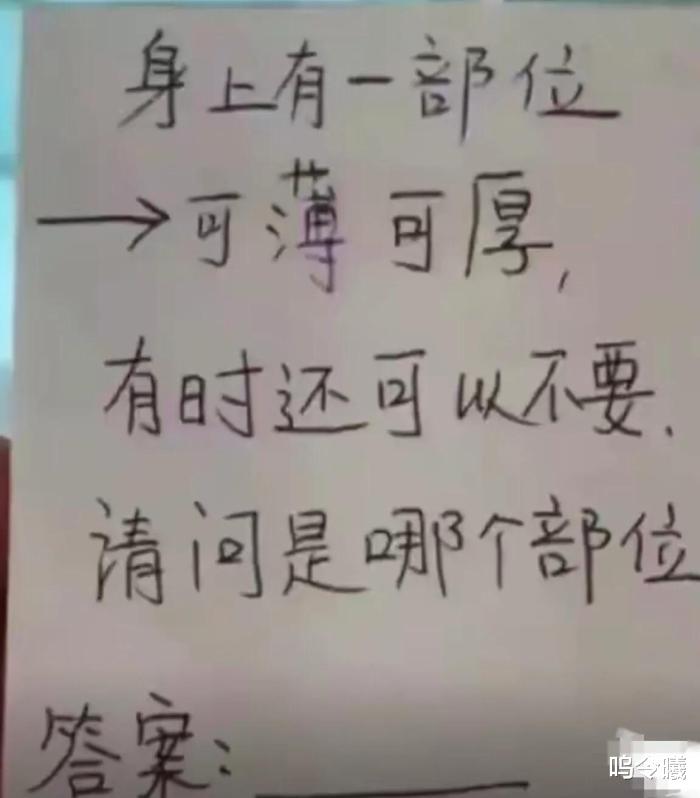 身上有一部位
→可薄可厚,
有时还可以不要.
请问是哪个部位
答案:
呜令曦